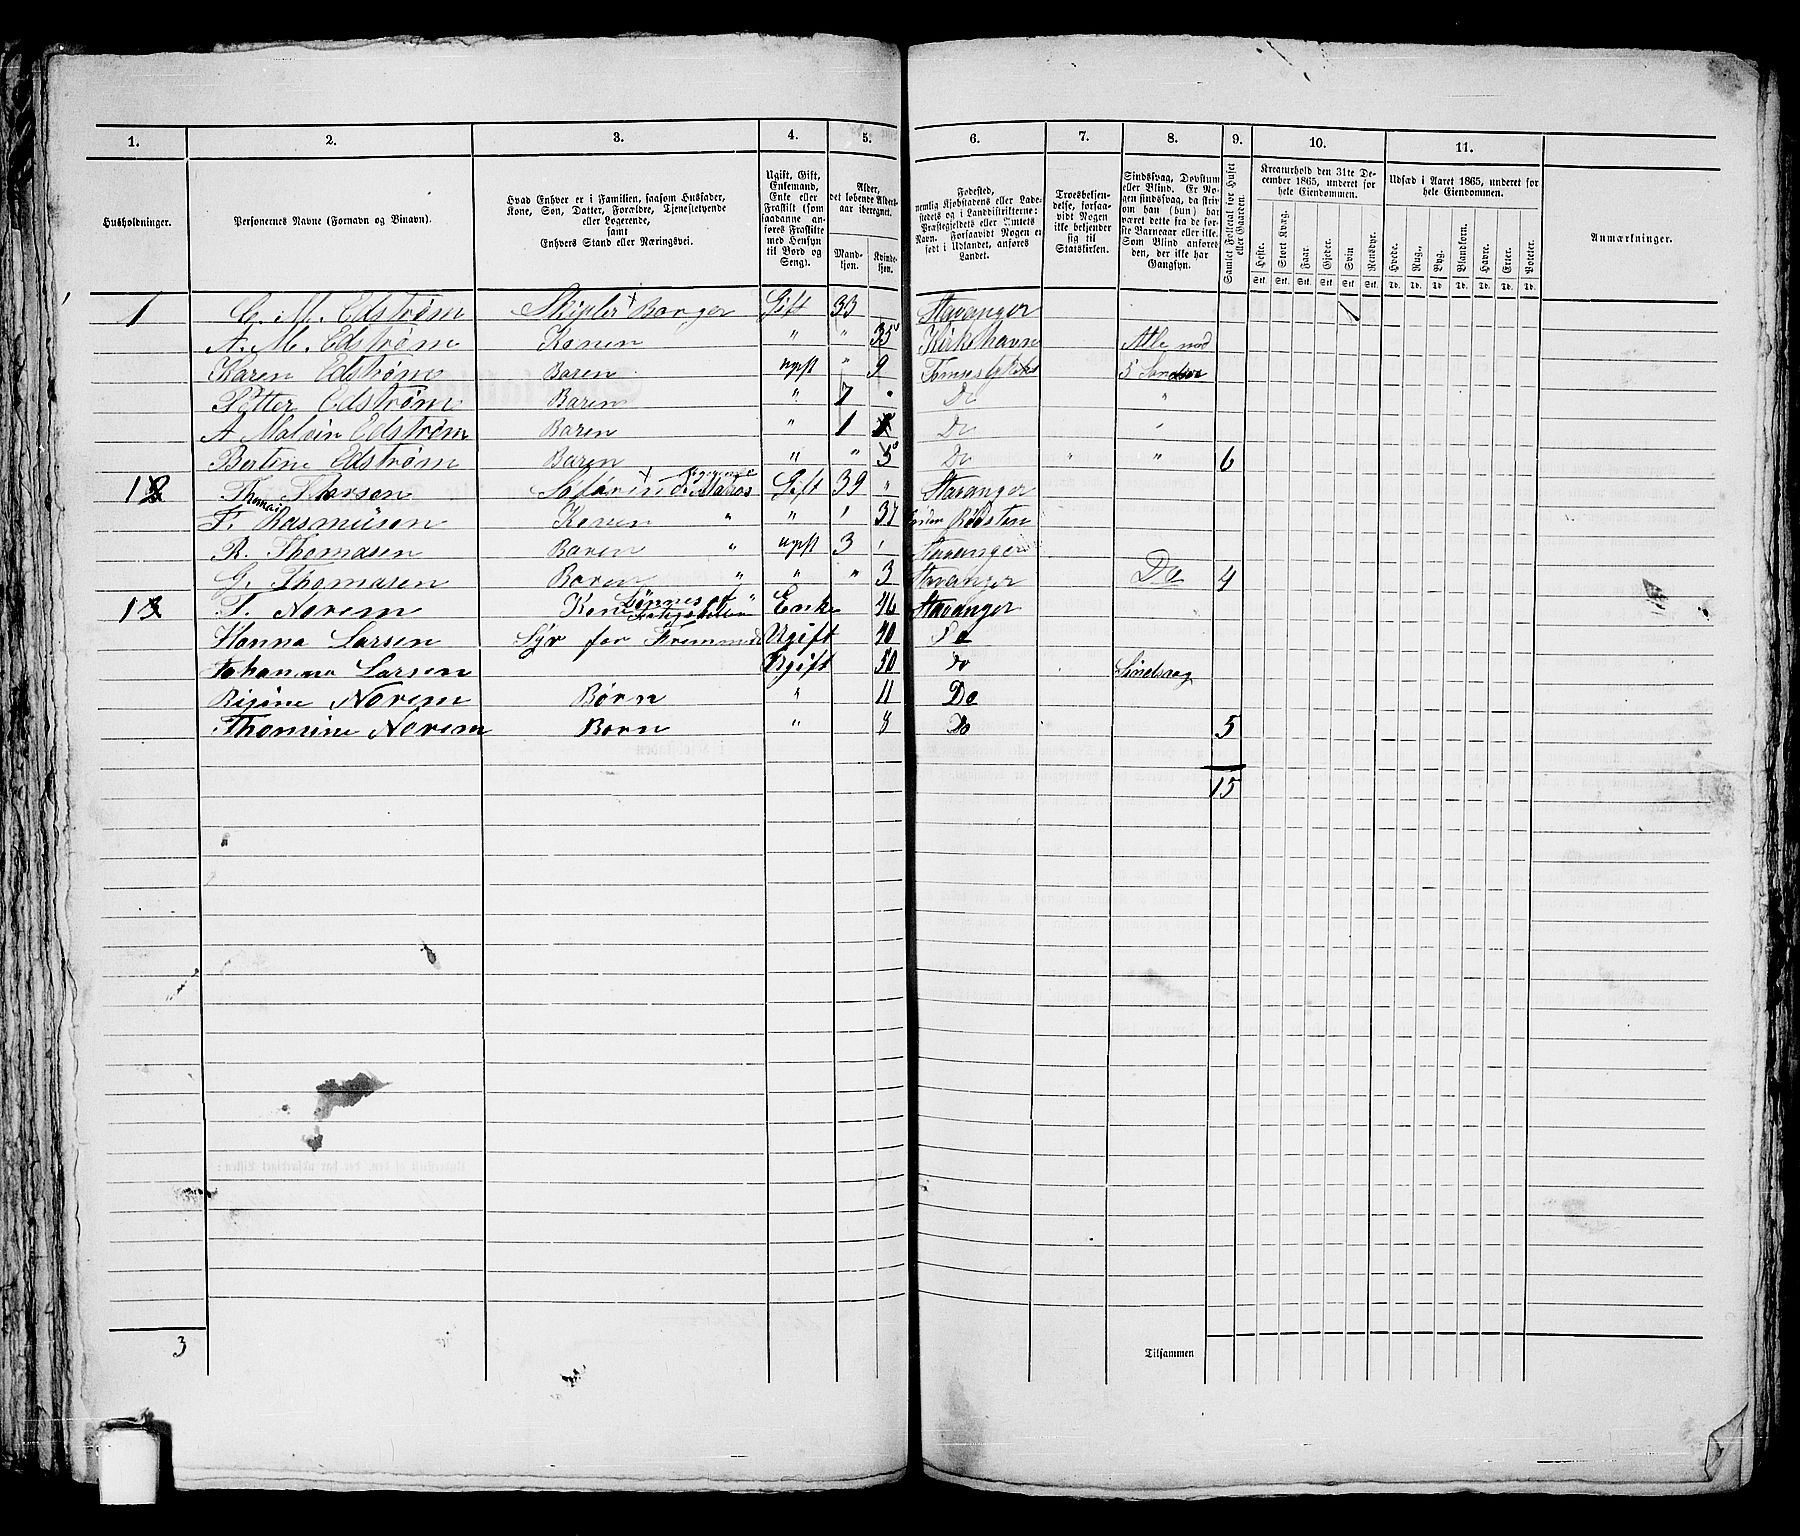 1. 2. 3. 4. 5. 6. 7. 8. 9. 10. 11.
Husholdninger.
Personernes Navne (Fornavn og Binavn).
Hvad Enhver er i Familien, saasom Husfader,
Kone, Søn, Datter, Forældre, Tjenestetyende
eller Logerende,
samt
Enhvers Stand eller Næringsvei.
Ugift, Gift,
Enkemand,
Enke eller
Frastilt (som
saadanne an-
føres Frastilte
med Hensyn
til Bord og
Seng).
Alder,
det løbende Alders-
aar iberegnet.
Mand-
kjøn.
Kvinde-
kjøn.
Fødested,
nemlig Kjøbstadens eller Lade-
stedets og i Landdistrikterne:
Præstegjeldets eller Sognets
Navn. Forsaavidt Nogen er
født i Udlandet, anføres
Landet.
Troesbekjen-
delse, forsaa-
vidt Nogen
ikke bekjender
sig til
Statskirken.
Sindssvag, Døvstum
eller Blind. Er No-
gen sindssvag, da skriv
om han (hun) har
været dette fra de før-
ste Barneaar eller ikke.
Som Blind anføres
den, der ikke har
Gangsyn.
Samlet Folketal for Huset
eller Gaarden.
Kreaturhold den 31te De-
cember 1865, underet for
hele Eiendommen.
Heste. Stort Kvæg. Faar. Gjeder. Svin Rensdyr.
Stk. Stk. Stk. Stk. Stk. Stk.
Udsæd i Aaret 1865, underet for
hele Eiendommen.
Hvede. Rug. Byg. Blandkorn. Havre. Erter. Poteter.
Td. Td. Td. Td. Td. Td. Td.
Anmærkninger.
1 C. M. Edstrøm Skipler Borger Gift 33 Stavanger
A. M. Edstrøm Konen " " 35 Kirkehavn Alle med
Karen Edstrøm Baren ugift " 9 5 Sandser
Pitter Edstrøm Baren " 7 Do "
A Malvin Edstrøm Baren " 1 Do
Bertine Edstrøm Baren " " 5 Do " " 6
1 Th Larsen Matros Gift 39 " Stavanger
T. Thomas Rasmusen Konen " " 37
R. Thomasen Baren " ugift 3 Stavanger
G. Thomasen Baren " " " 3 Stavanger Do 4
1 T. Norem Kone Enke 46 Stavanger
Hanna Larsen Syr for Fremmede Ugift 40 Do
Johanna Larsen Ugift 50 Do Sindsvag
Børn " 11 Do
Thomine Norem Born " 8 Do 5
15
3
Tilsammen